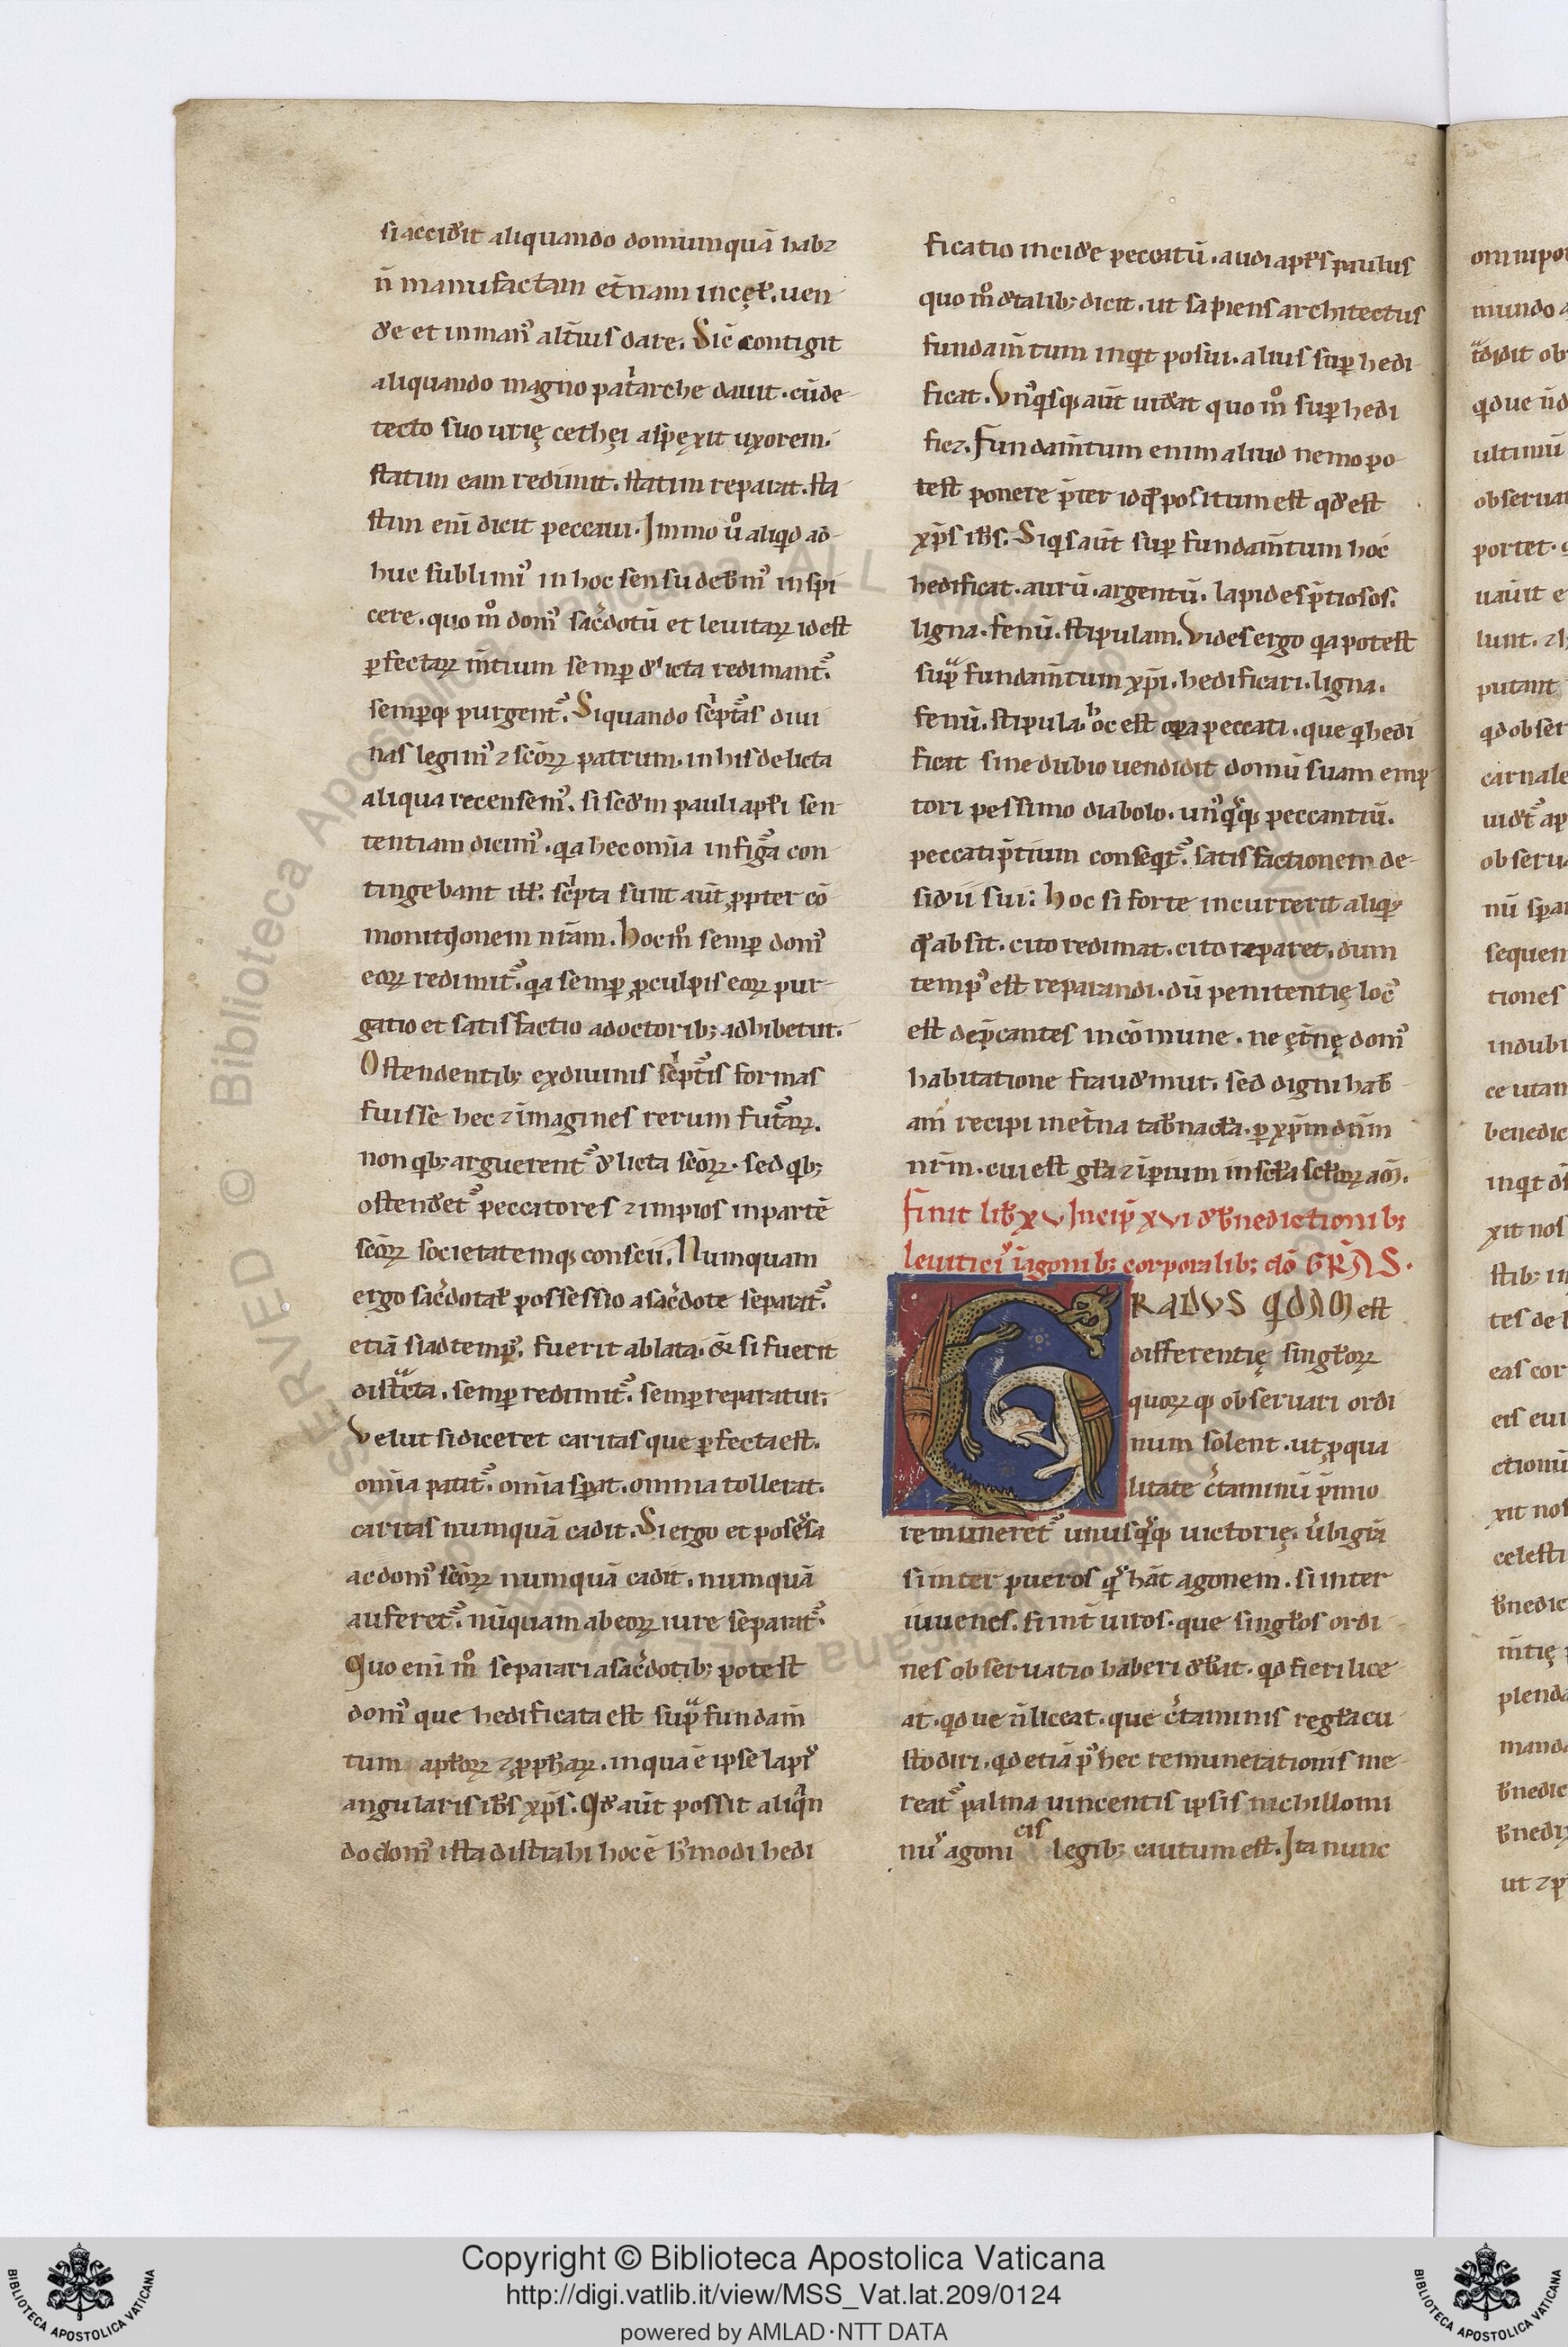 si accidit aliquando domum quā habꝫ
n̄ manufactam et̄nam in cęł. uen
de et in man᾽ alt̄ius dare. Sic contigit
aliquando magno pat̾arche dauit. cū de
tecto suo urię cethęi aspexit uxorem.
statim eam redimit. statim reparat. sta
stim eni dicit peccaui. Immo u̾o aliqd ad
huc sublimi᾽ in hoc sensu debem᾽ inspi
cere. quo m̊ dom᾽ sac̾dotū et leuitaꝝ id est
ꝑfectaꝝ m̄tium semꝑ delicta redimant᾽.
semꝑqꝫ purgent᾽. Siquando sc̾ptas diui
nas legim᾽ ⁊ sc̄oꝝ patrum. in his delicta
aliqua recensem᾽. si scd̄m pauli apłi sen
tentiam dicim᾽. qa hec om̄ia in figa con
tingebant ill̄. sc̾pta sunt aūt ꝓpter cō
monitionem nr̄am. hoc m̊ semꝑ dom᾽
eoꝝ redimit᾽. qa semꝑ ꝓ culpis eoꝝ pur
gatio et satisfactio a doctoribꝫ adhibetur.
Ostendentibꝫ ex diuinis sc̾ptis formas
fuisse hec ⁊ imagines rerum futaꝝ.
non qbꝫ arguerent᾽ delicta sc̄oꝝ. sed qbꝫ
ostendet᾽ peccatores ⁊ impios in partē
sc̄oꝝ societatemqꝫ conscii. Numquam
ergo sac̾dotał possessio a sac̾dote separat᾽.
etiā si ad temp᾽. fuerit ablata. & si fuerit
distcta. semꝑ redimit᾽. semꝑ reparatur.
Velut si diceret caritas que ꝑfecta est.
om̄ia patit᾽. om̄ia sperat. omnia tollerat.
caritas numquā cadit. Si ergo et possessa
ac dom᾽ sc̄oꝝ numquā cadit. numquā
auferet᾽. nūquam ab eoꝝ iure separat᾽.
Quo eni m̊ separari a sac̾dotibꝫ potest
dom᾽ que hedificata est sup fundam̄
tum apłoꝝ ⁊ ꝓphaꝝ. in qua ē ipse lapis
angularis ih̄s xp̄s. Qd aūt possit aliqn
do dom᾽ ista distrahi hoc ē h᾽modi hedi
ficatio incide peccatū. audi apłs paulus
quo m̊ de talibꝫ dicit. ut sapiens architectus
fundam̄tum inqt posui. alius suꝑ hedi
ficat. Vn᾽qsqꝫ aūt uideat quo m̊ suꝑ hedi
ficꝫ. Fundam̄tum enim aliud nemo po
test ponere p̄ter id qd positum est qd est
xp̄s ih̄s. Si qs aūt suꝑ fundam̄tum hoc
hedificat. aurū. argentū. lapides p̄tiosos.
ligna. fenū. stipulam. Vides ergo qa potest
sup fundam̄tum xp̄i. hedificari. ligna.
fenū. stipula. hoc est opa peccati. que q hedi
ficat sine dubio uendidit domū suam emp
tori pessimo diabolo. un᾽qsqꝫ peccantiū.
peccati p̄tium conseqt᾽. satisfactionem de
siderii sui. hoc si forte incurrerit aliqs
qd absit. cito redimat. cito reparet. dum
temp᾽ est reparandi. dū penitentię loc᾽
est dep̄cantes in cōmune. ne ęt̄nę dom᾽
habitatione fraudemur. sed digni hab
am recipi in et̄na tab̄nacła. ꝑ xp̄m dn̄m
nr̄m. cui est gła ⁊ ipium in scła scłoꝝ am̄.
Finit lib xv Incip̄ xvi de bnedictionibꝫ
leuitici ī agonibꝫ corporalibꝫ dō GR̄AS.
GRADVS QDAM est
differentię singłoꝝ
quoꝝ qꝫ obseruari ordi
num solent. ut ꝓ qua
litate c̾taminū p̄mio
remuneret᾽ unusqsqꝫ uictorię. u̾bi gr̄a
si inter pueros qs hāt agonem. si inter
iuuenes. si int̄ uiros. que singłos ordi
nes obseruatio haberi debeat. qd fieri lice
at. qd ue n̄ liceat. que c̾taminis regła cu
stodiri. qd etiā p᾽ hec remunerationis me
reat᾽ palma uincentis ipsis nichillomi
nus agonicis legibꝫ cautum est. Ita nunc
Copyright © Biblioteca Apostolica Vaticana
http://digi.vatlib.it/view/MSS_Vat.lat.209/0124
powered by AMLAD·NTT DATA
BIBLIOTECA APOSTOLICA VATICANA
BIBLIOTECA APOSTOLICA VATICANA